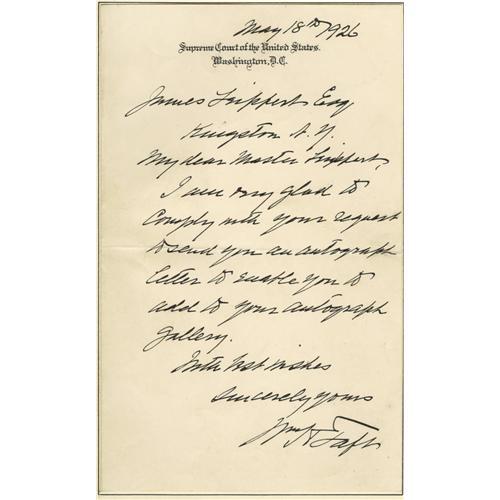 May 18th 1926
Supreme Court of the United States.
Washington, D.C.
James Lippert Esq,
Kingston N.Y.
My dear Master Lippert,
I am very glad to
comply with your request
to send you an autograph
letter to enable you to
add to your autograph
gallery.
With best wishes
Sincerely yours
Wm H Taft